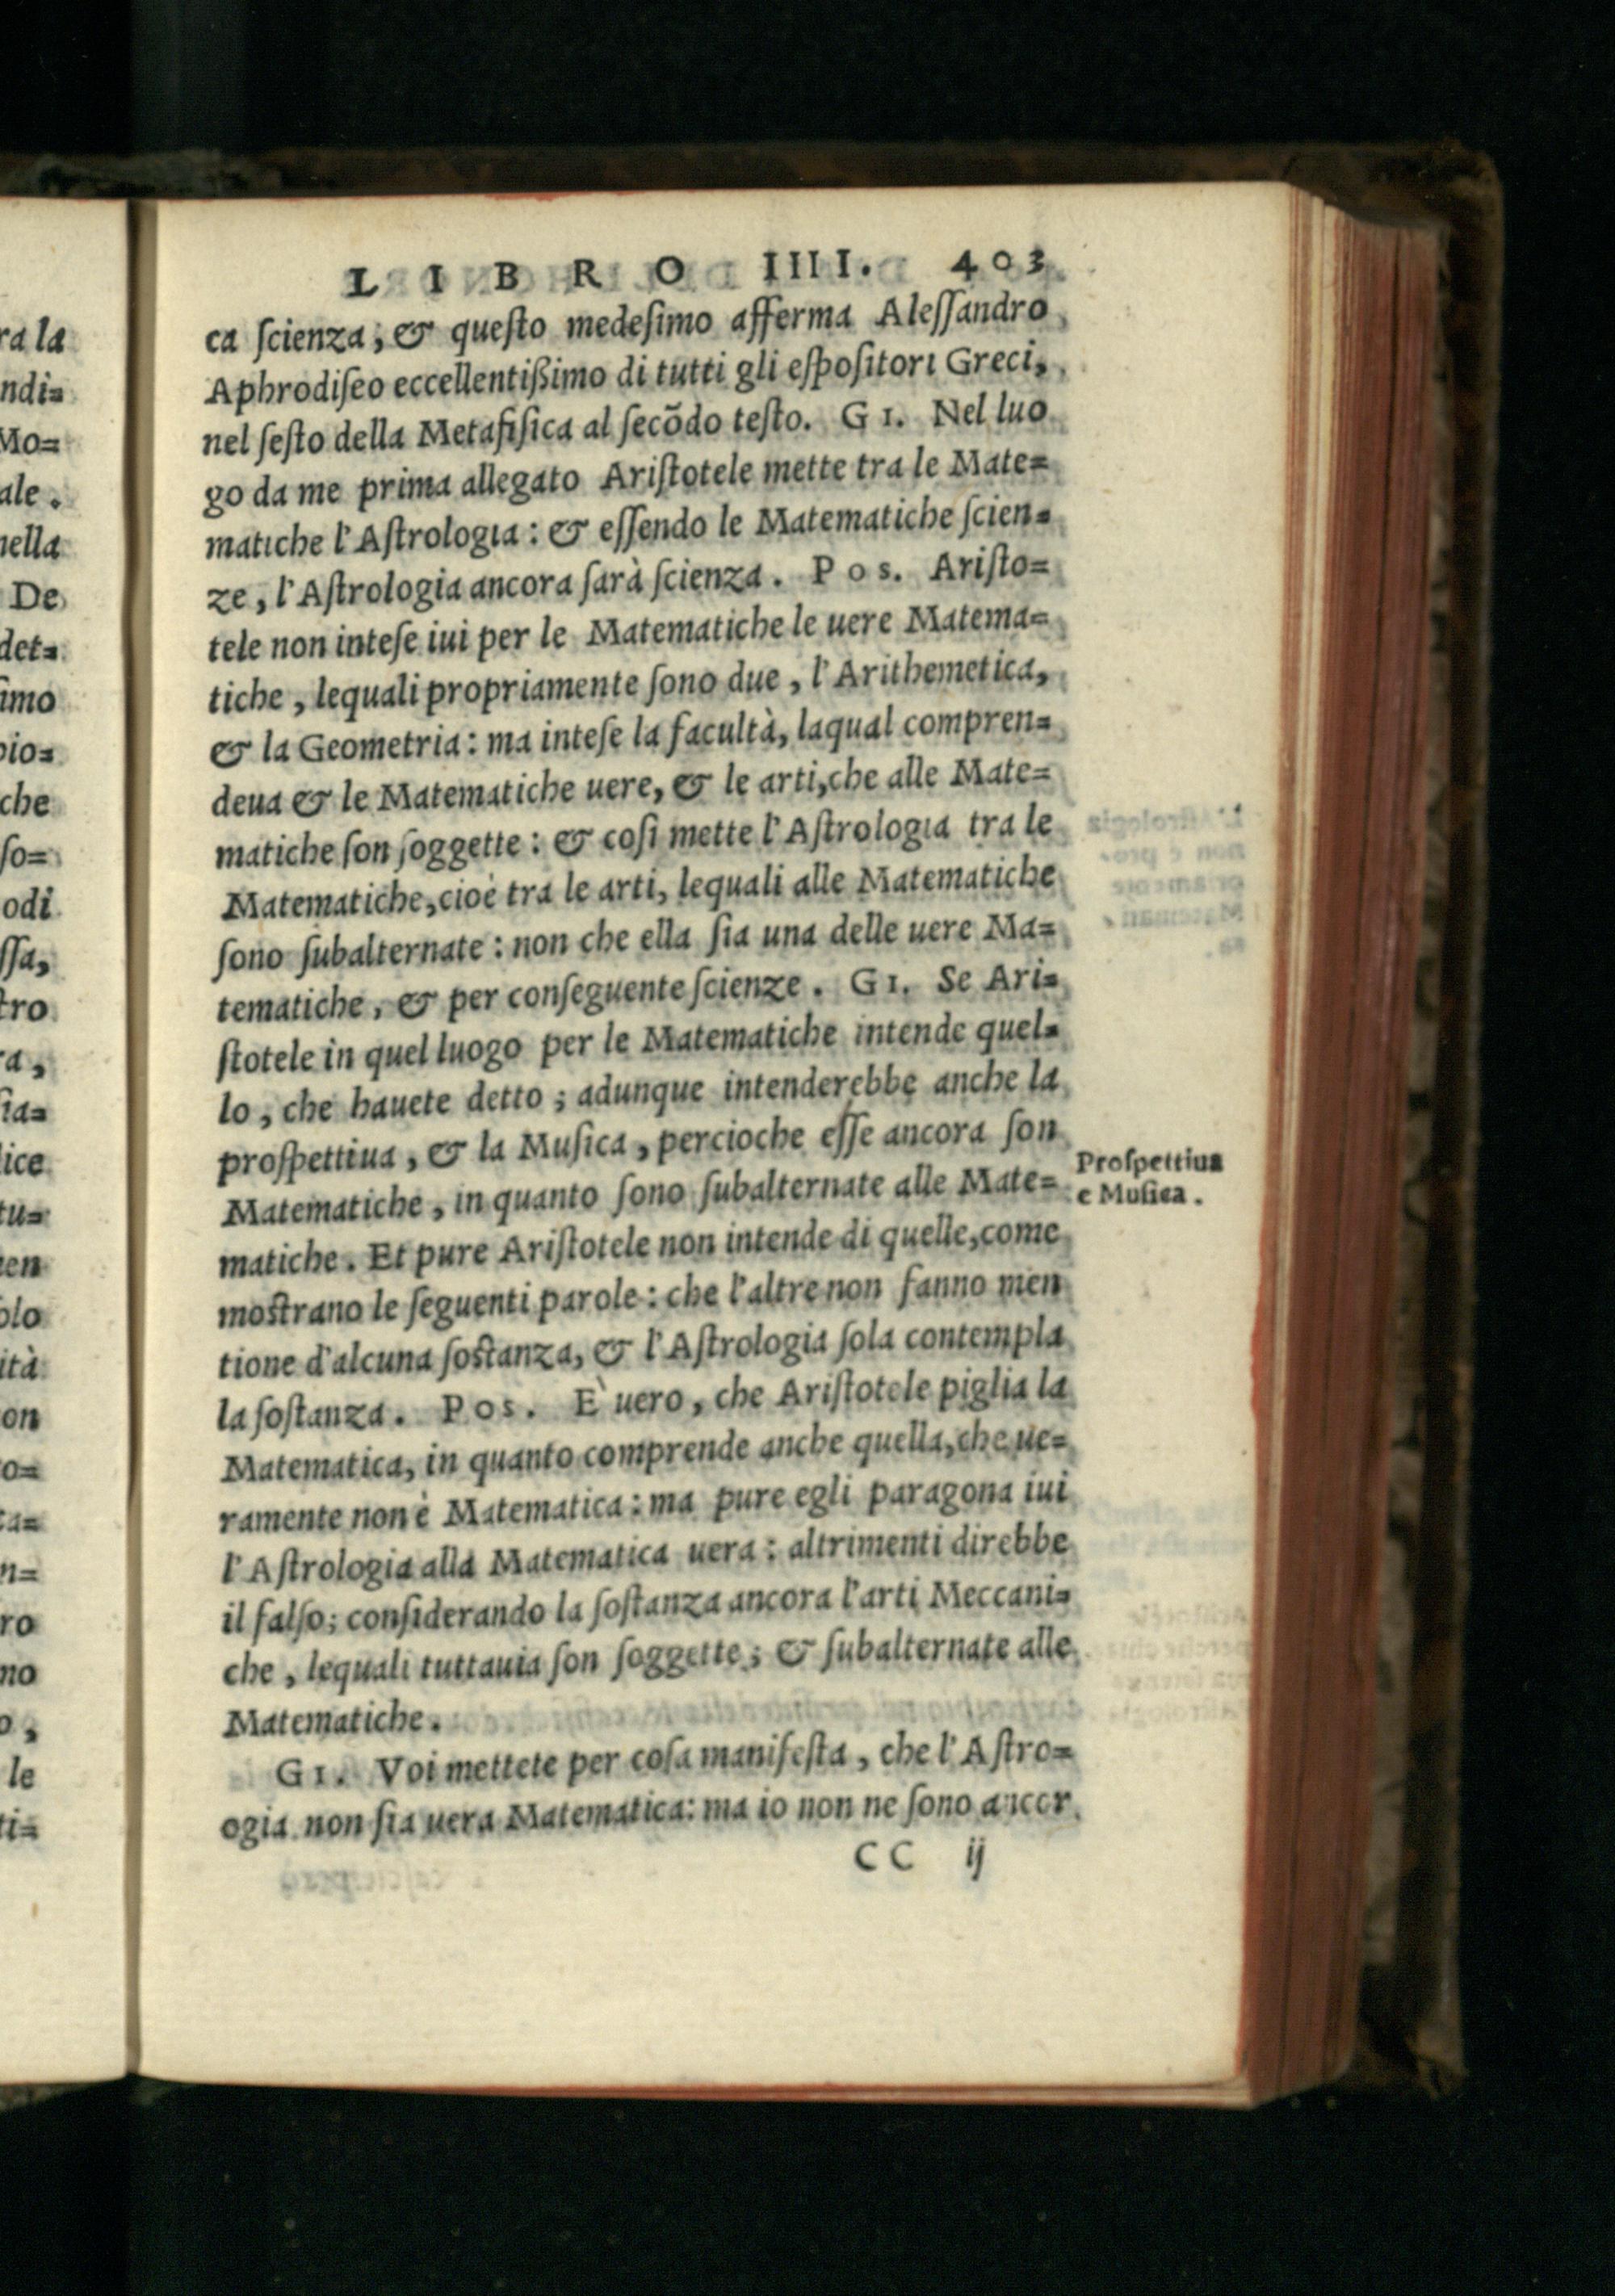 LIBRO IIII. 403
ca ſcienza; & queſto medeſimo afferma Aleſſandro
Aphrodiſeo eccellentißimo di tutti gli eſpoſitori Greci,
nel ſeſto della Metafiſica al ſecõdo teſto. GI. Nel luo
go da me prima allegato Ariſtotele mette tra le Mate=
matiche l'Aſtrologia: & eſſendo le Matematiche ſcien=
ze, l'Aſtrologia ancora ſarà ſcienza. Pos. Ariſto=
tele non inteſe iui per le Matematiche le uere Matema=
tiche, lequali propriamente ſono due, l'Arithemetica,
& la Geometria: ma inteſe la facultà, laqual compren=
deua & le Matematiche uere, & le arti, che alle Mate=
matiche ſon ſoggette: & coſi mette l'Aſtrologia tra le
Matematiche, cioè tra le arti, lequali alle Matematiche
ſono ſubalternate: non che ella ſia una delle uere Ma=
tematiche, & per conſeguente ſcienze. GI. Se Ari=
ſtotele in quel luogo per le Matematiche intende quel=
lo, che hauete detto; adunque intenderebbe anche la
proſpettiua, & la Muſica, percioche eſſe ancora ſon
Proſpettiua
e Muſica.
Matematiche, in quanto ſono ſubalternate alle Mate=
matiche. Et pure Ariſtotele non intende di quelle, come
moſtrano le ſeguenti parole: che l'altre non fanno men
tione d'alcuna ſoſtanza, & l'Aſtrologia ſola contempla
la ſoſtanza. Pos. E` uero, che Ariſtotele piglia la
Matematica, in quanto comprende anche quella, che ue=
ramente non è Matematica: ma pure egli paragona iui
l'Aſtrologia alla Matematica uera: altrimenti direbbe
il falſo; conſiderando la ſoſtanza ancora l'arti Meccani=
che, lequali tuttauia ſon ſoggette; & ſubalternate alle
Matematiche.
GI. Voi mettete per coſa manifeſta, che l'Aſtro=
ogia non ſia uera Matematica: ma io non ne ſono ancor
CC ij
ra la
ndi=
Mo=
ale.
nella
De
det=
ſimo
pio=
che
ſo=
odi
ſſa,
ſtro
ra,
ſia=
lice
tu=
uen
olo
ità
on
o=
ta=
n=
ro
no
o,
le
ti=